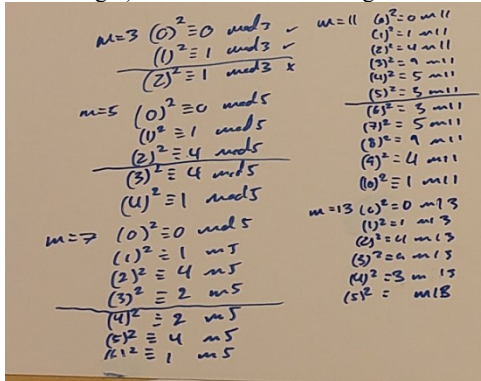 m=3 (0)² ≡ 0 mod 3 ✓
(1)² ≡ 1 mod 3 ✓
(2)² ≡ 1 mod 3 x
m=5 (0)² ≡ 0 mod 5
(1)² ≡ 1 mod 5
(2)² ≡ 4 mod 5
(3)² ≡ 4 mod 5
(4)² ≡ 1 mod 5
m=7 (0)² ≡ 0 mod 5
(1)² ≡ 1 m 5
(2)² ≡ 4 m 5
(3)² ≡ 2 m 5
(4)² ≡ 2 m 5
(5)² ≡ 4 m 5
(6)² ≡ 1 m 5
m=11 (0)² = 0 m 11
(1)² = 1 m 11
(2)² = 4 m 11
(3)² = 9 m 11
(4)² = 5 m 11
(5)² = 3 m 11
(6)² = 3 m 11
(7)² = 5 m 11
(8)² = 9 m 11
(9)² = 4 m 11
(10)² = 1 m 11
m=13 (0)² = 0 m 13
(1)² = 1 m 13
(2)² = 4 m 13
(3)² = 9 m 13
(4)² = 3 m 13
(5)² = m 13